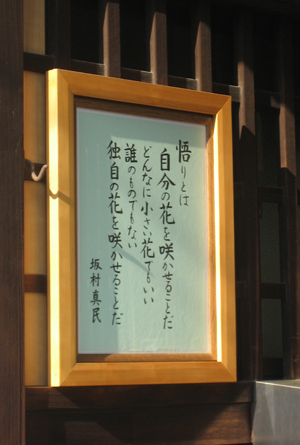 悟りとは
自分の花を咲かせることだ
どんなに小さい花でもいい
誰のものでもない
独自の花を咲かせることだ
坂村真民